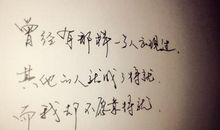 曾经有那样一个人出现过,
其他的人就成了将就,
而我却不愿意将就.